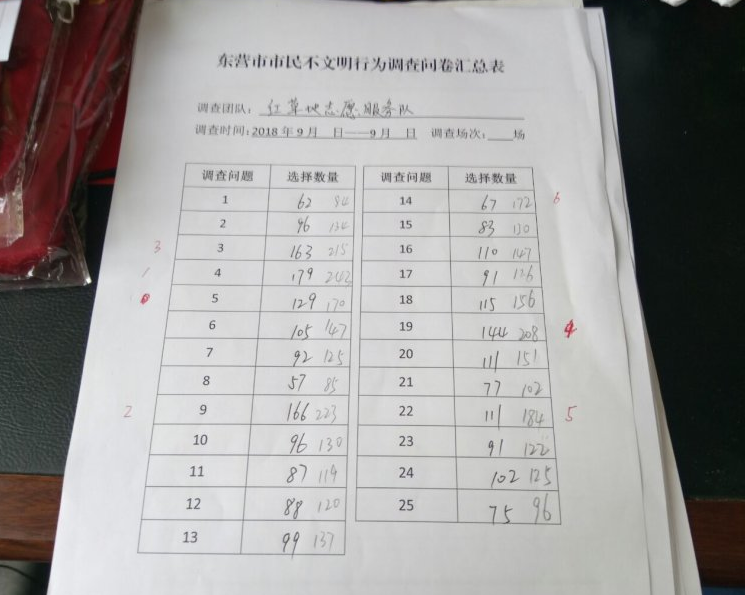 东营市市民不文明行为调查问卷汇总表
调查团队: 红草地志愿服务队
调查时间: 2018年9月 日——9月 日 调查场次: 场
调查问题 选择数量 调查问题 选择数量
1 62 84 14 67 172 6
2 96 134 15 83 130
3 3 163 215 16 110 147
1 4 179 242 17 91 126
5 129 170 18 115 156
6 105 147 19 144 208 4
7 92 125 20 111 151
8 57 85 21 77 102
2 9 166 223 22 111 184 5
10 96 130 23 91 122
11 87 119 24 102 125
12 88 120 25 75 96
13 99 137